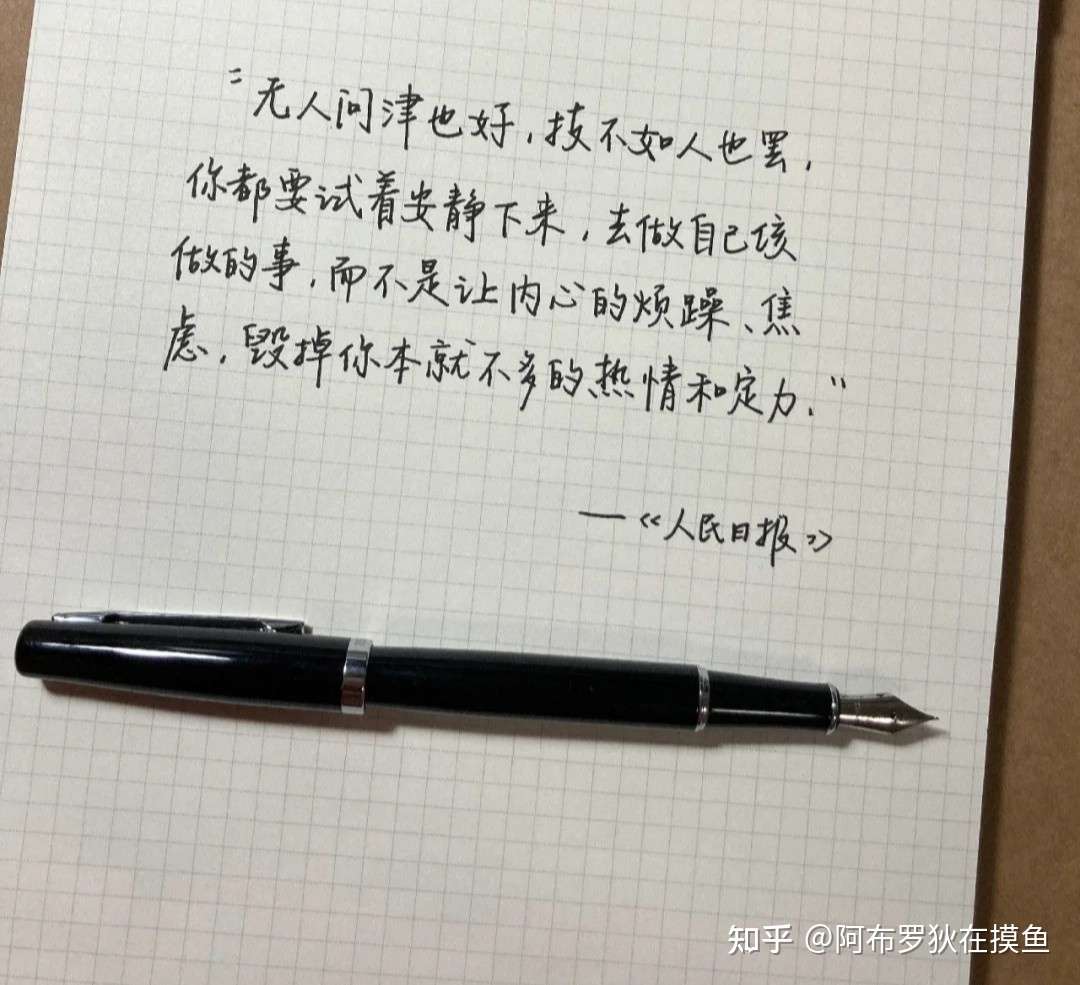 “无人问津也好，技不如人也罢，
你都要试着安静下来，去做自己该
做的事，而不是让内心的烦躁、焦
虑，毁掉你本就不多的热情和定力．”
—《人民日报》
知乎 @阿布罗狄在摸鱼